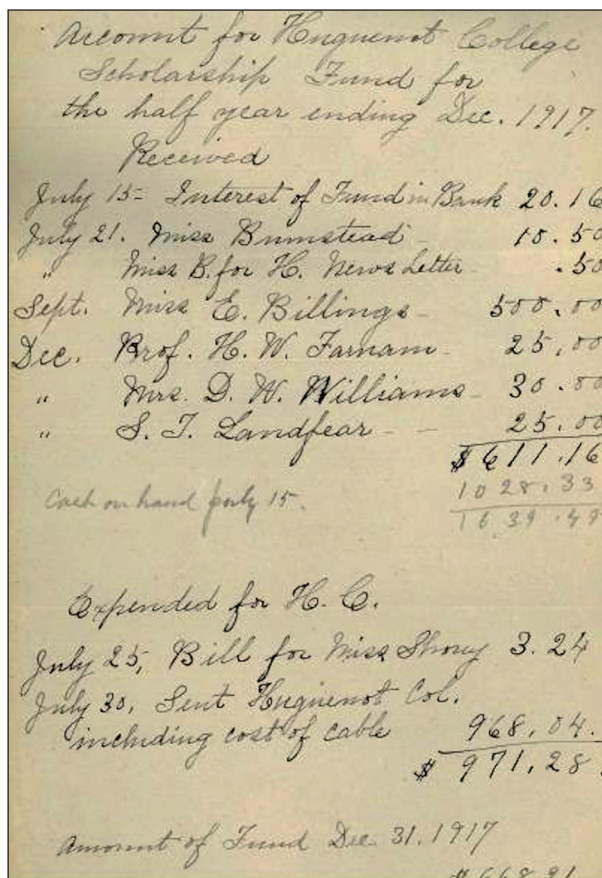 Account for Huguenot College
Scholarship Fund for
the half year ending Dec. 1917.
Received
July 15- Interest of Fund in Bank 20.16
July 21. Miss Bumstead - 10.50
" Miss B. for H. News Letter - .50
Sept. Miss E. Billings - 500.00
Dec. Prof. H. W. Farnam - 25.00
" Mrs. D. W. Williams - 30.00
" S. J. Landfear - - 25.00
$611.16
Cash on hand July 15. 1028.33
1639.49
Expended for H. C.
July 25, Bill for Miss 3.24
July 30, Sent Huguenot Col.
including cost of cable 968.04.
$971.28.
Amount of Fund Dec. 31. 1917
$668.21